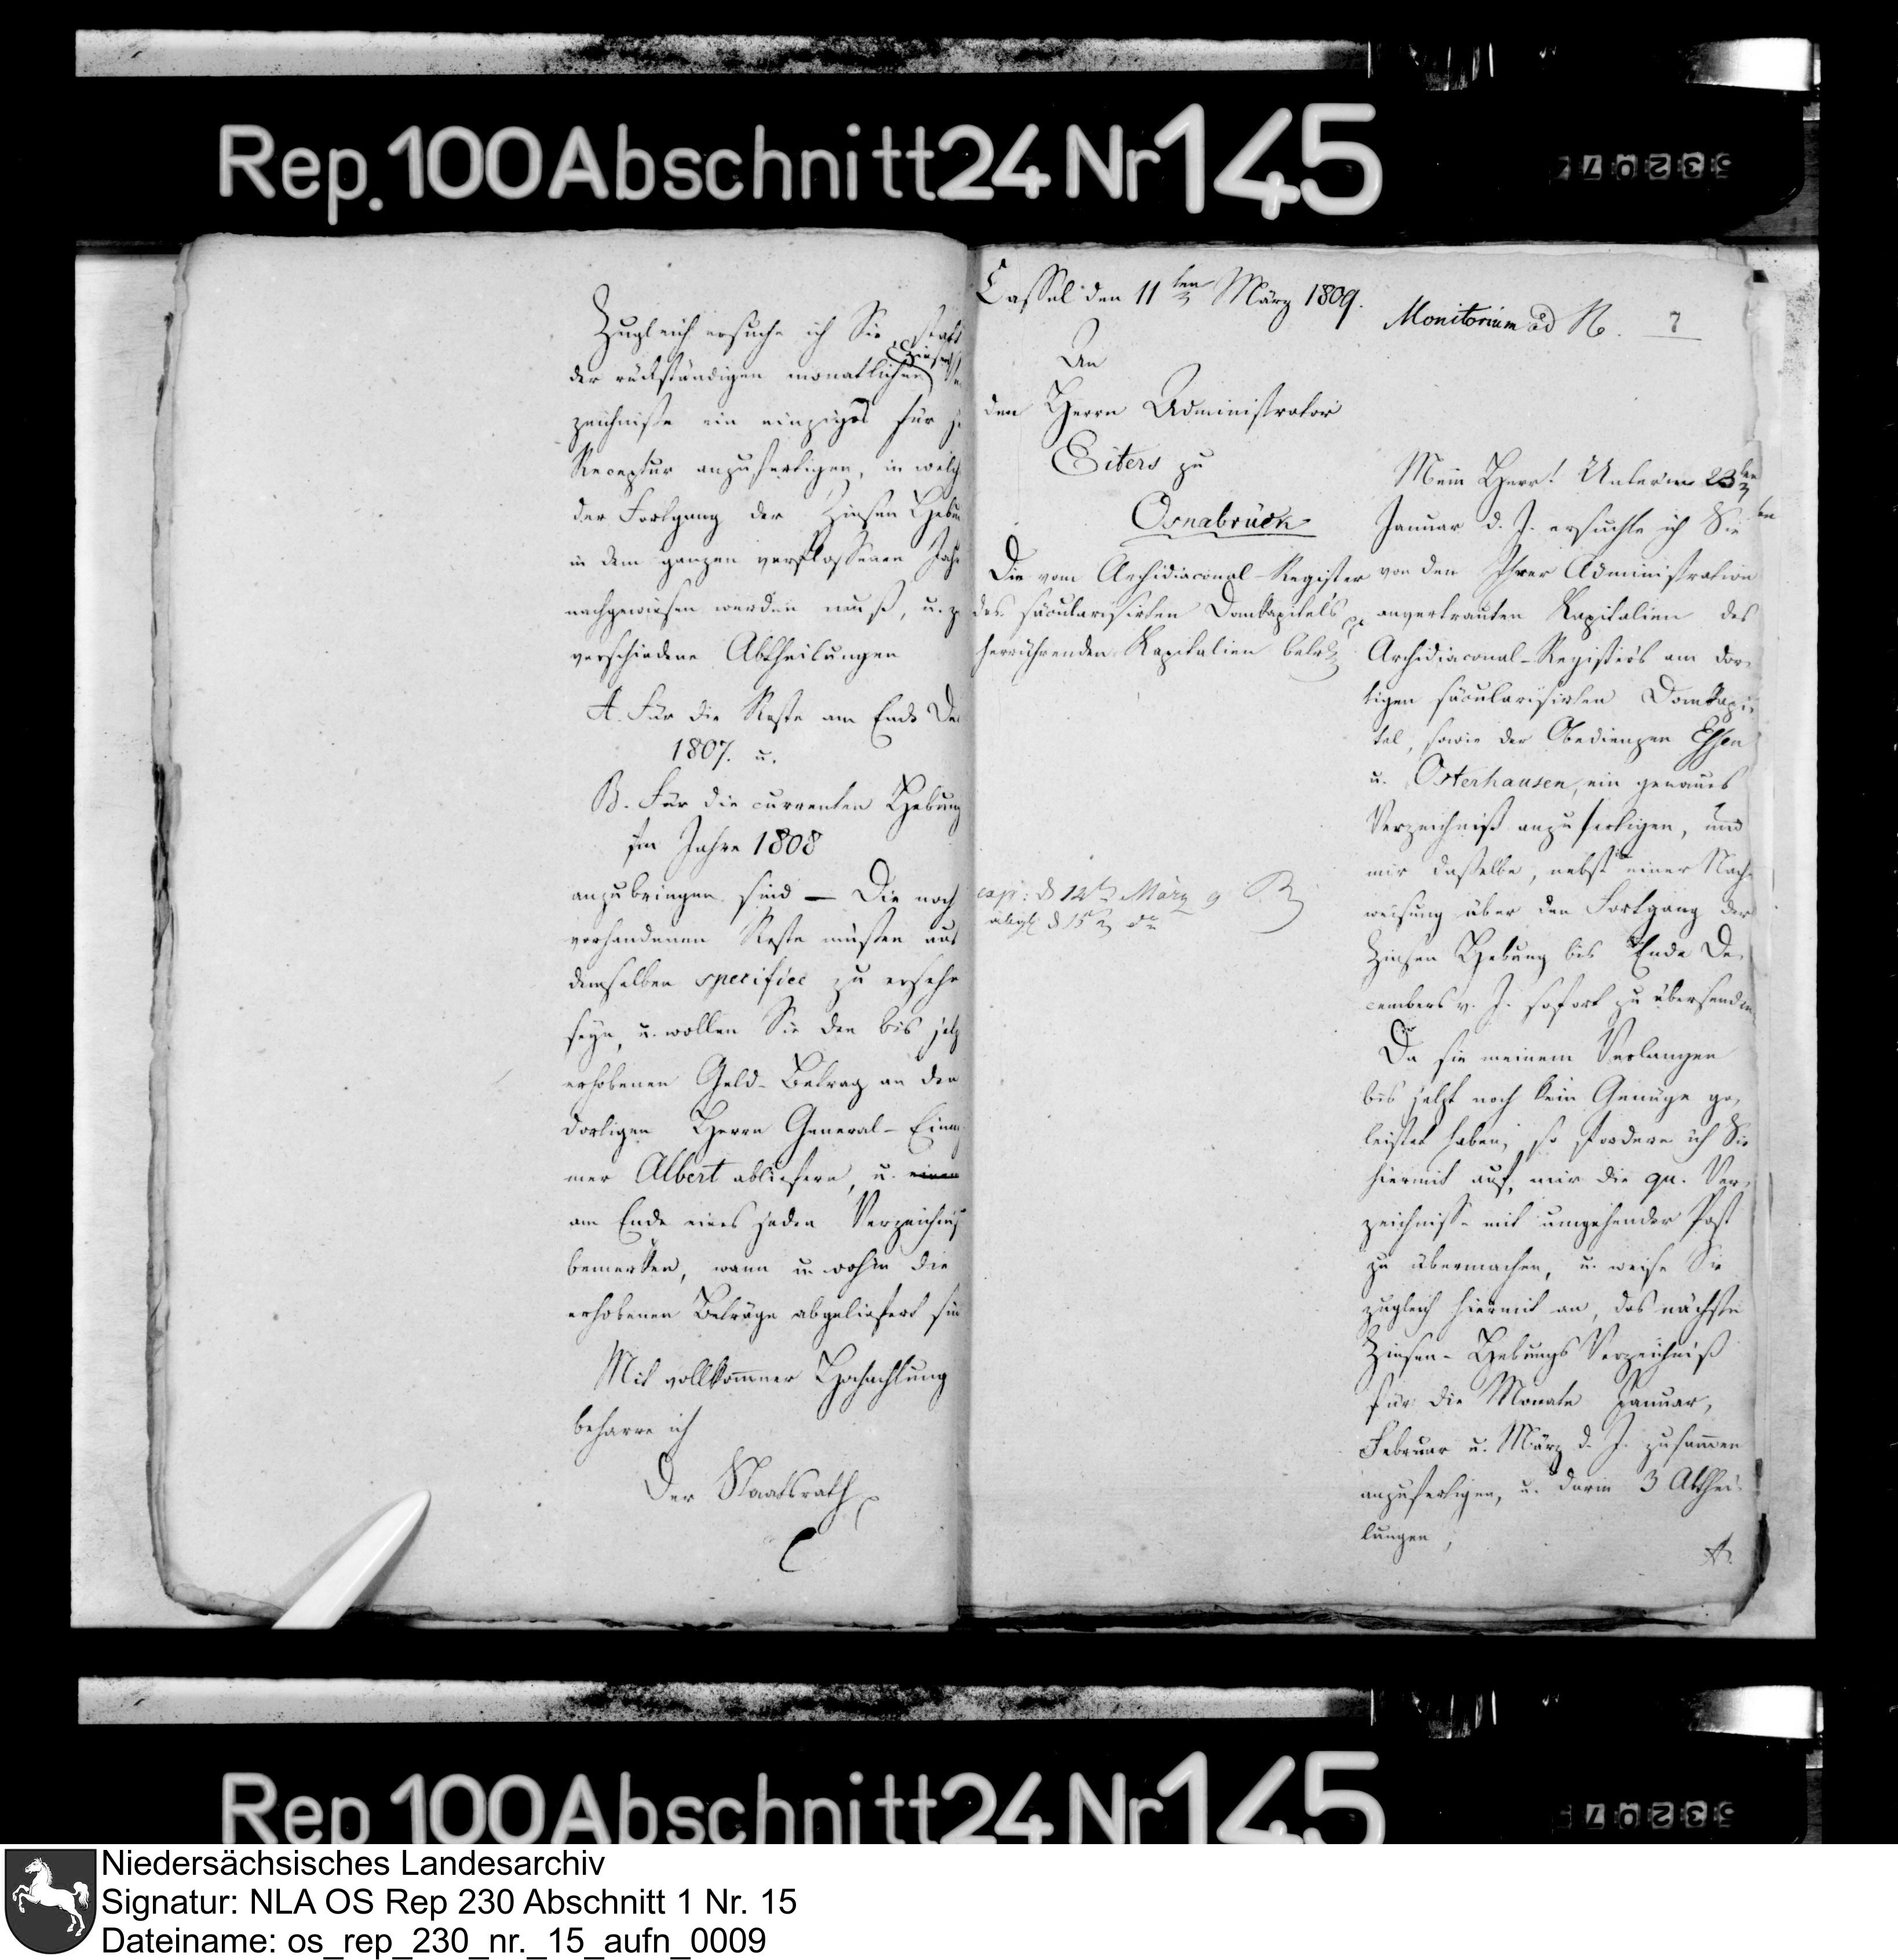 Rep. 100 Abschnitt 24 Nr 145
53207
Zugleich ersuche ich Sie, statt
der rückständigen monatlichen
Zinsen
zeichnisse ein einziges für
Receptur anzufertigen, in welch
der Fortgang der Zinsen Hebu
in dem ganzen verflossenen Jah
nachgewiesen werden muß, u.
verschiedene Abtheilungen
A. Für die Reste am Ende De
1807. u.
B. Für die currenten Hebung
im Jahre 1808
anzubringen sind — Die noch
vorhandenen Reste müssen aus
demselben specifice zu ersehe
seyn, u. wollen Sie den bis jetz
erhobenen Geld-Betrag an den
dortigen Herrn General-Einn
mer Albert abliefern, u. einen
am Ende eines jeden Verzeichniß
bemerken, wann u. wohin die
erhobenen Beträge abgeliefert sin
Mit vollkommner Hochachtung
beharre ich
Der Staatsrath
Cassel den 11ten März 1809.
Monitorium ad N. 7
An
den Herrn Administrator
Eiters zu
Osnabrück
Die vom Archidiaconal-Register
des säcularisirten Domkapitels
herrührenden Kapitalien betr.
cop: d 14t März 9
abgl d 15t do
Mein Herr! Unterm 23ten
Januar d. J. ersuchte ich Sie
von den Ihrer Administration
anvertrauten Kapitalien des
Archidiaconal-Registers am dor-
tigen säcularisirten Domkapi-
tel, sowie der Obedienzen Essen
u. Osterhausen, ein genaues
Verzeichniß anzufertigen, und
mir dasselbe, nebst einer Nach-
weisung über den Fortgang der
Zinsen Hebung bis Ende De-
cembers v. J. sofort zu übersenden
Da sie meinem Verlangen
bis jetzt noch kein Genüge ge-
leistet haben, so fordere ich Sie
hiermit auf, mir die qu. Ver-
zeichnisse mit umgehender Post
zu übermachen, u. weise Sie
zugleich hiermit an, das nächste
Zinsen-Hebungs Verzeichniß
für die Monate Januar,
Februar u. März d. J. zusammen
anzufertigen, u. darin 3 Abthei-
lungen,
A.
Rep 100 Abschnitt 24 Nr 145
53207
Niedersächsisches Landesarchiv
Signatur: NLA OS Rep 230 Abschnitt 1 Nr. 15
Dateiname: os_rep_230_nr._15_aufn_0009